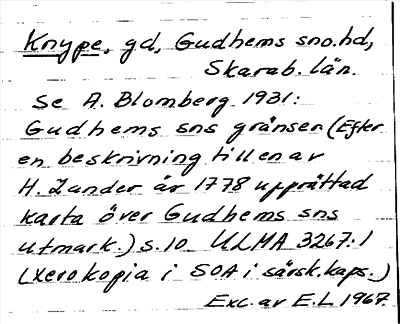 Knype, gd, Gudhems sno.hd,
Skarab. län.
Se A. Blomberg 1931:
Gudhems sns gränser (Efter
en beskrivning till en av
H. Zander år 1778 upprättad
karta över Gudhems sns
utmark.) s.10. ULMA 3267:1
(Xerokopia i SOA i särsk. kaps.)
Exc. av E.L 1967.